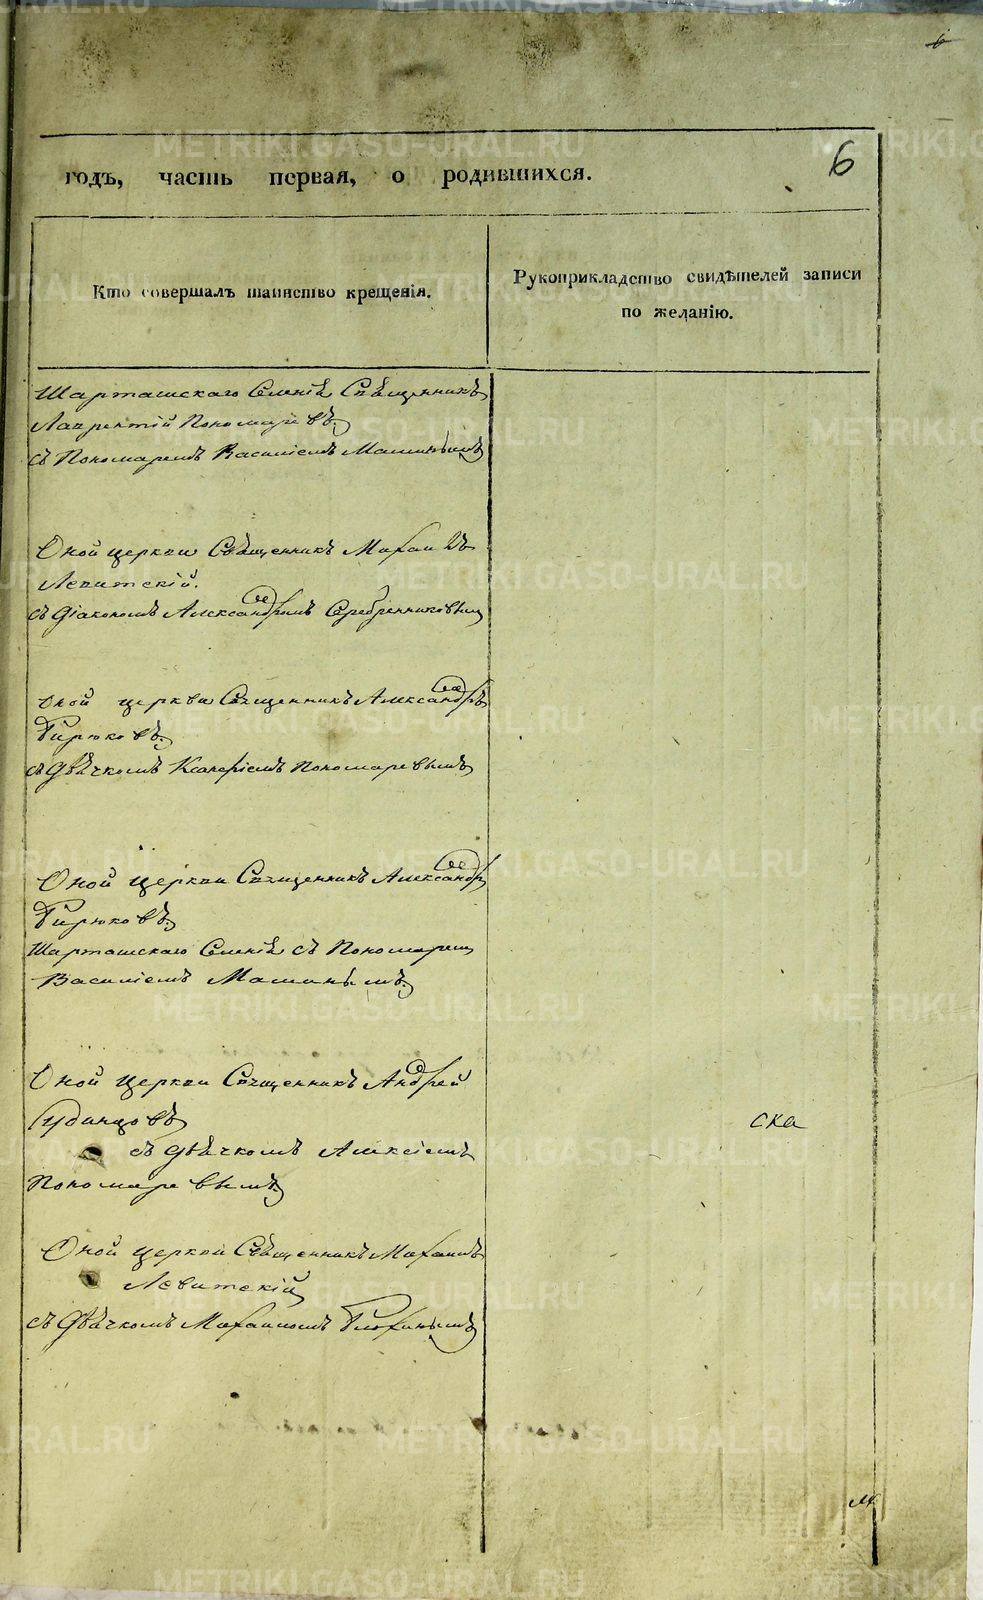 6
годъ, часть первая, о родившихся.
Кто совершалъ таинство крещенія.
Рукоприкладство свидѣтелей записи
по желанію.
Шарташскаго Селенія Священникъ
Лаврентій Пономаревъ
съ Пономаремъ Василіемъ Маминымъ
Оной церкви Священникъ Михаилъ
Левитскій.
съ діакономъ Александромъ Серебренниковымъ
Оной церкви Священникъ Александръ
Бирюковъ
съ дьячкомъ Пономаревымъ
Оной церкви Священникъ Александръ
Бирюковъ
Шарташскаго Селенія съ Пономаремъ
Василіемъ Маминымъ
Оной церкви Священникъ Андрей
съ дьячкомъ Алексіемъ
Пономаревымъ
Оной церкви Священникъ Михаилъ
Левитскій
съ дьячкомъ Михаиломъ
ска
METRIKI.GASO-URAL.RU